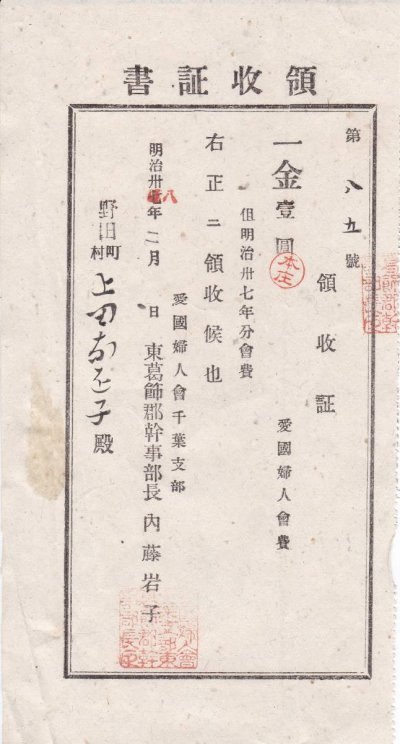 領收証書
第八五號
領收証
愛國婦人會費
一金壹圓
本庄
但明治卅七年分會費
右正ニ領收候也
明治卅八年二月 日
愛國婦人會千葉支部
東葛飾郡幹事部長 內藤岩子
野田町村 上田 子殿